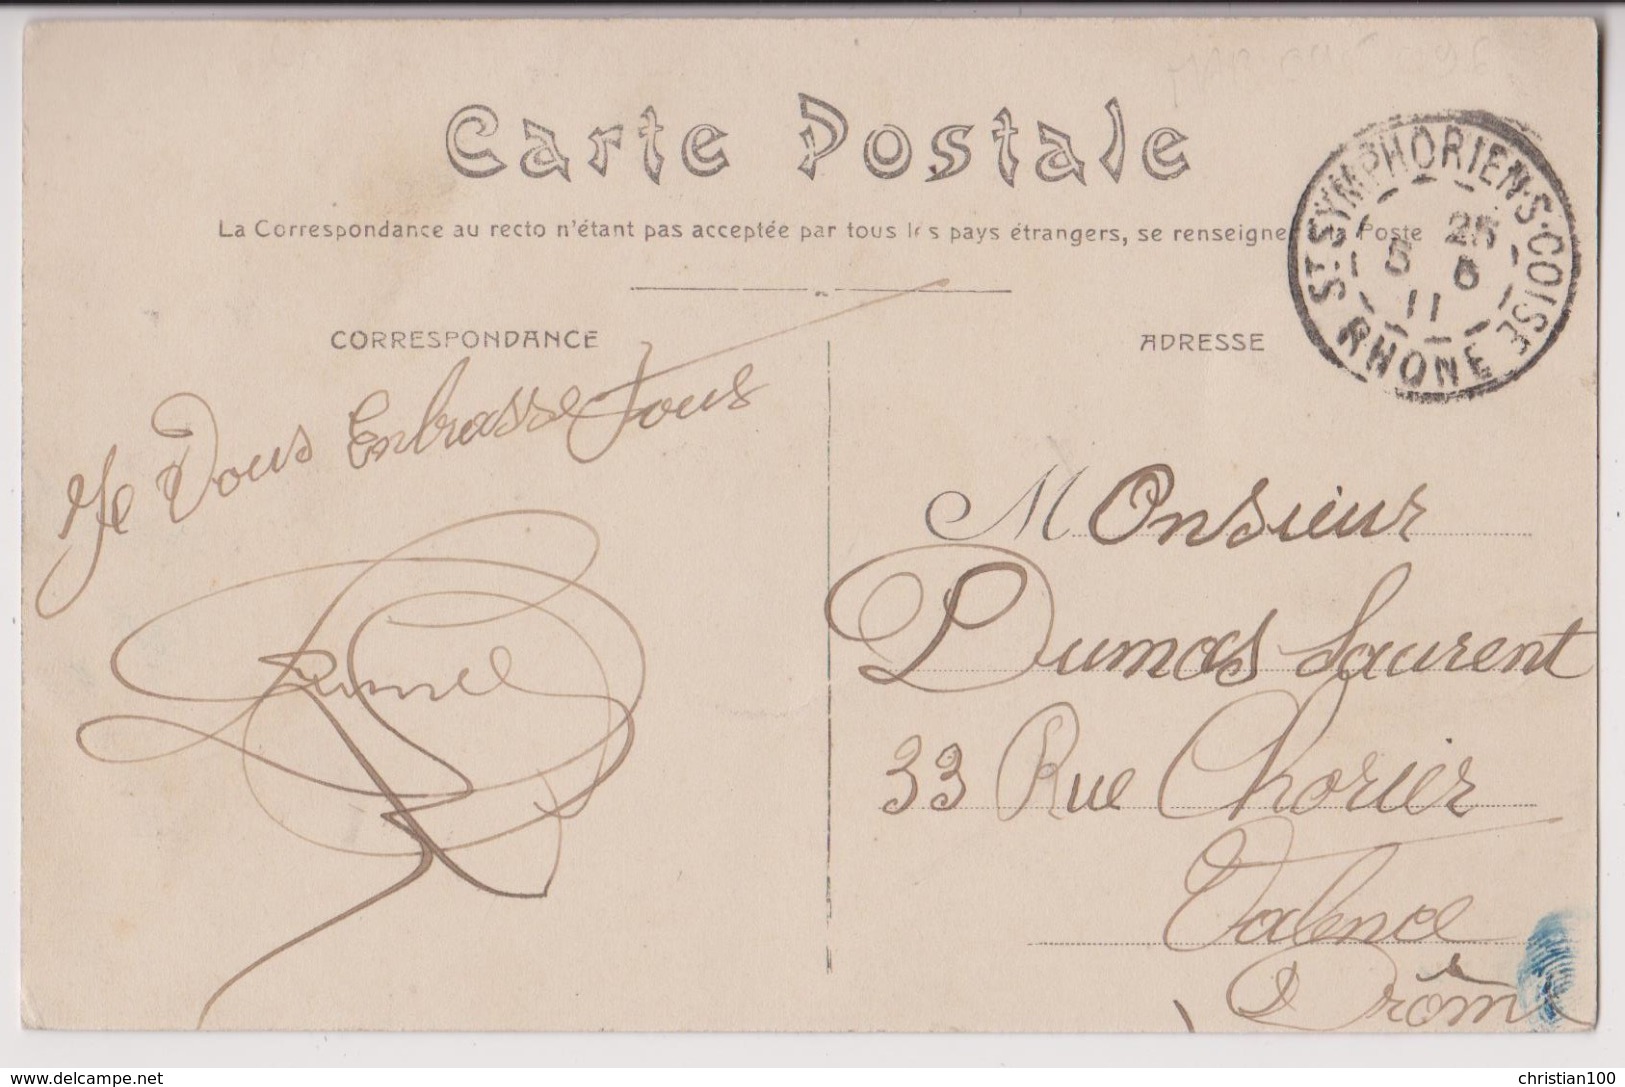 Carte Postale
La Correspondance au recto n'étant pas acceptée par tous les pays étrangers, se renseigner à la Poste
CORRESPONDANCE
ADRESSE
ST. SYMPHORIEN-S-COISE
25
5 6
11
RHONE
Je Vous Enbrasse Tous
Monsieur
Dumas Laurent
33 Rue Chorier
Valence
Drôme
www.delcampe.net
christian100